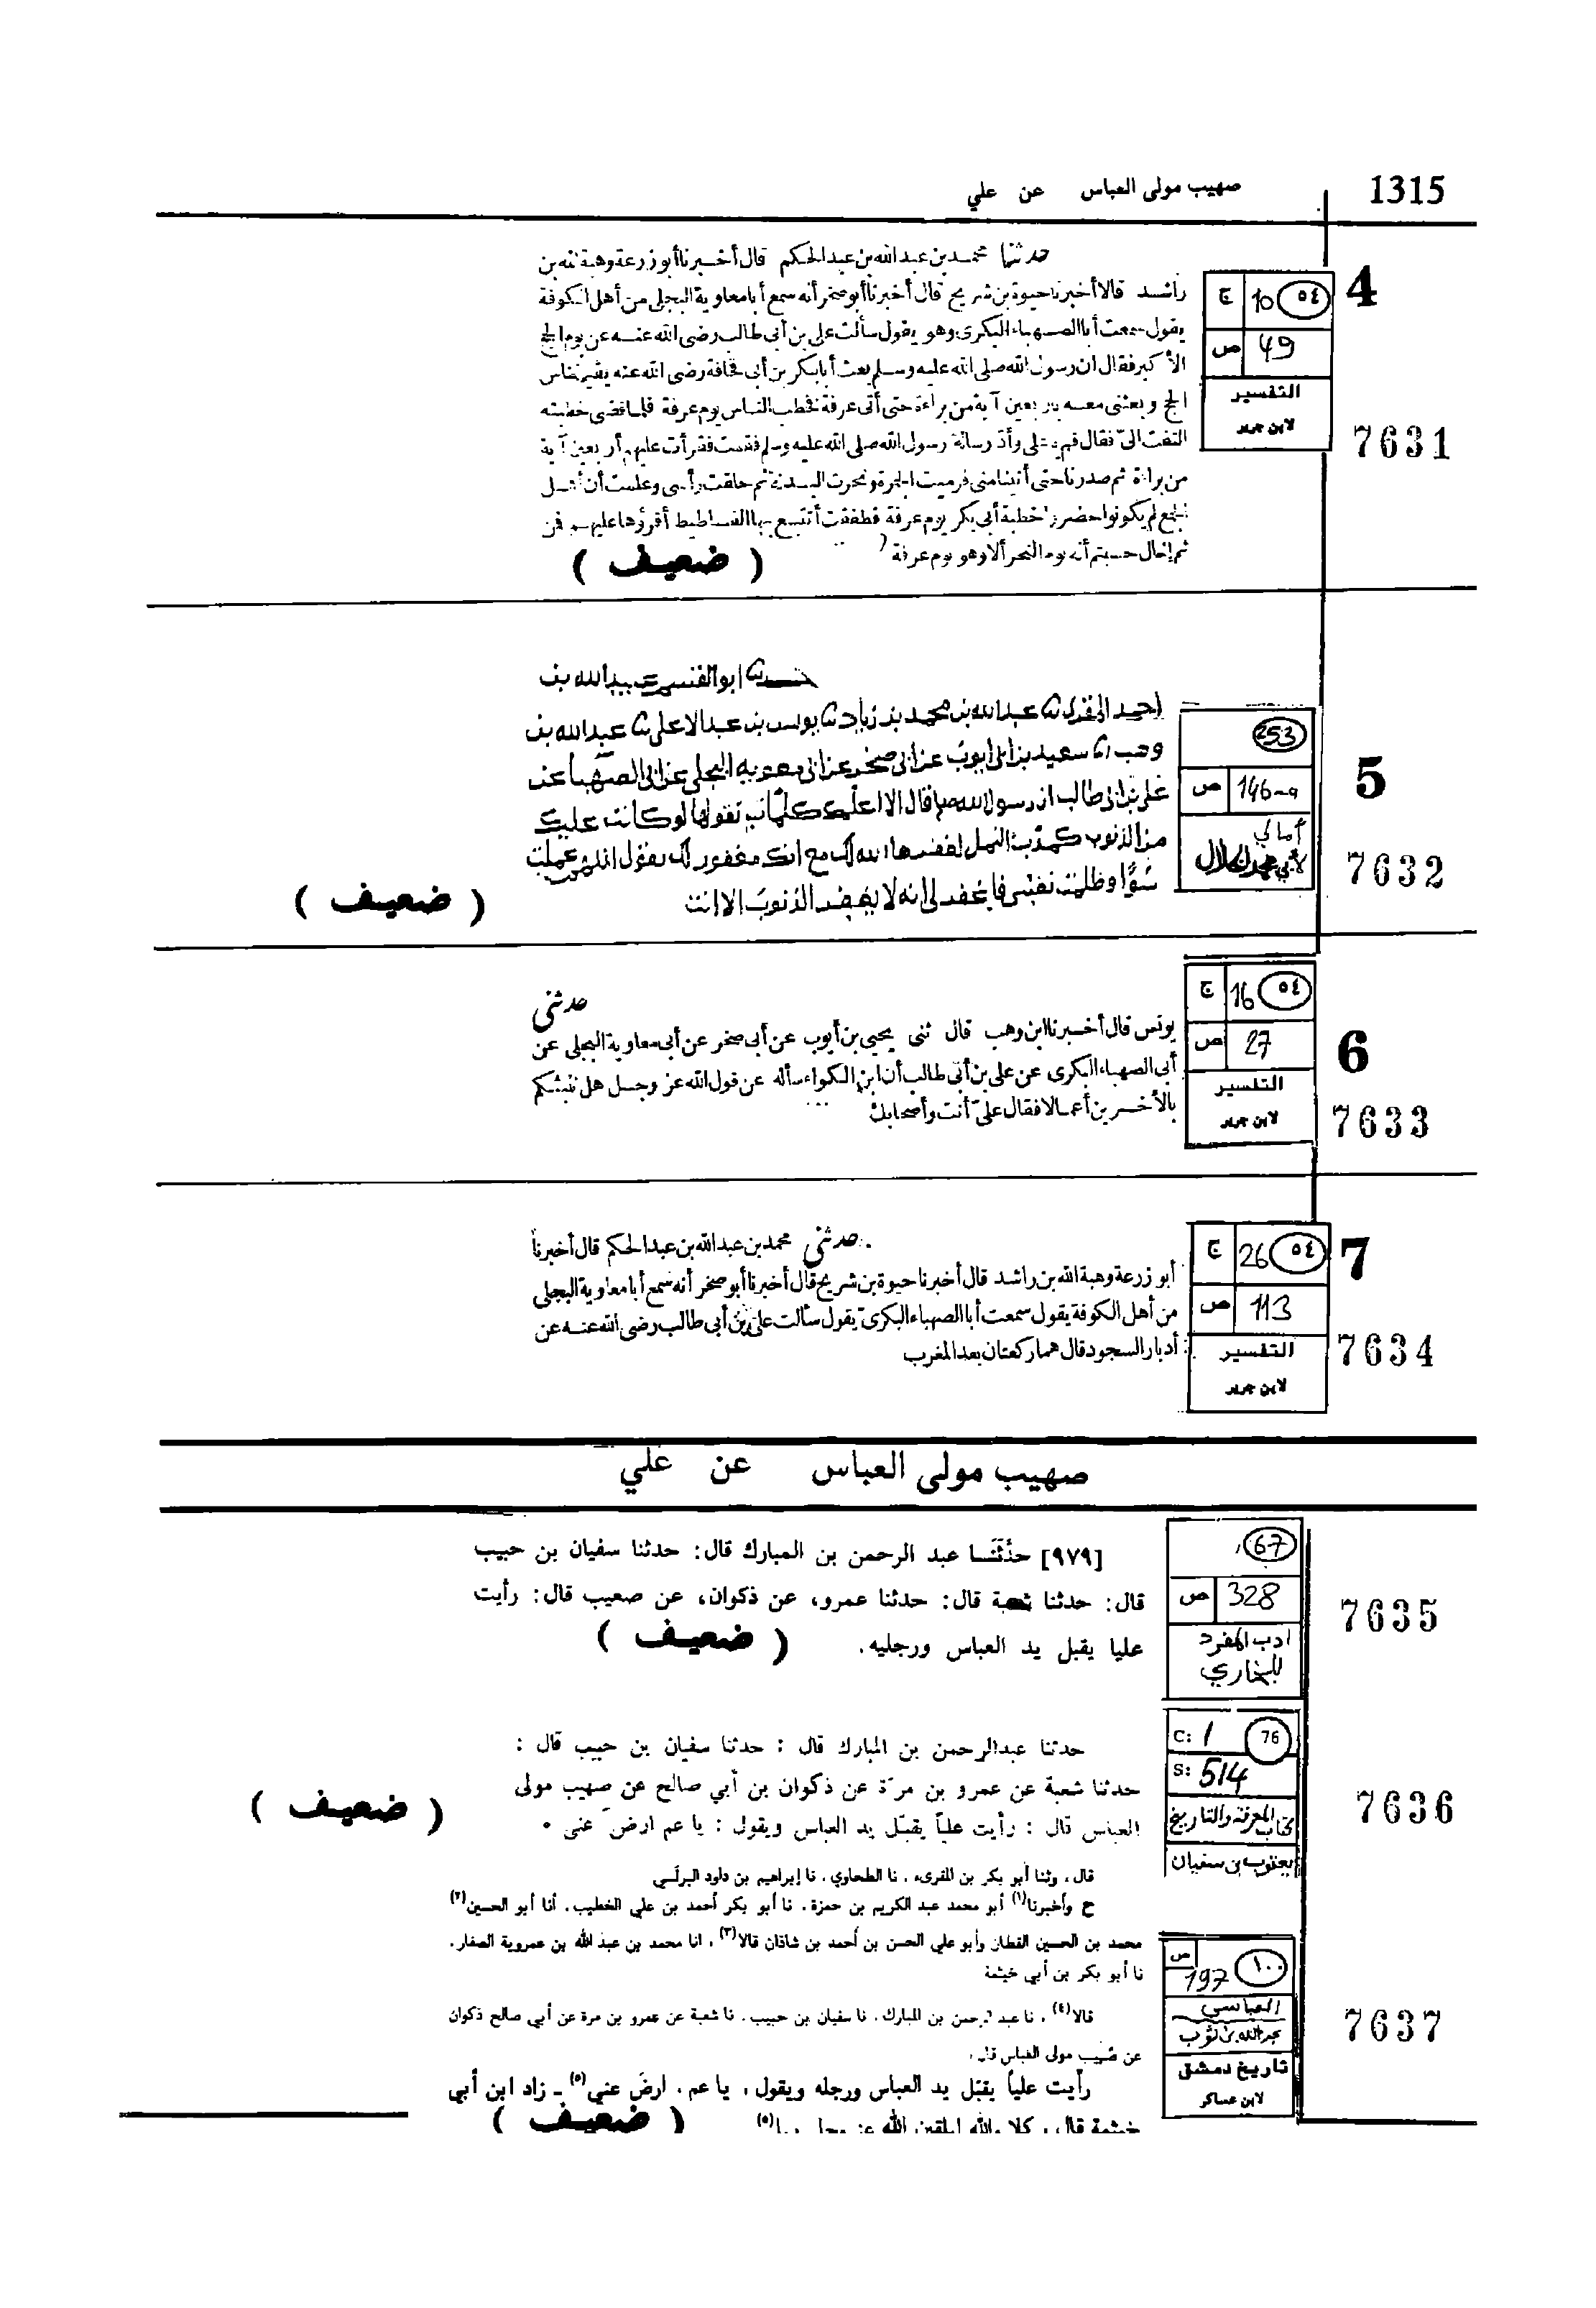 صهيب مولى العباس عن علي 1315
حدثنا محمد بن عبد الله بن عبد الحكم قال أخبرنا أبو زرعة وهبة الله بن
راشد قالا أخبرنا حيوة بن شريح قال أخبرنا أبو صخر أنه سمع أبا معاوية البجلي من أهل الكوفة
يقول سمعت أبا الصهباء البكرى وهو يقول سألت على بن أبى طالب رضى الله عنه عن يوم الحج
الأكبر فقال ان رسول الله صلى الله عليه وسلم بعث أبا بكر بن أبى قحافة رضى الله عنه يقيم للناس
الحج وبعثنى معه بار بعين آية من براءة حتى أتى عرفة فخطب الناس يوم عرفة فلما قضى خطبته
التفت الىّ فقال قم يا على وأدّ رسالة رسول الله صلى الله عليه وسلم فقمت فقرأت عليهم أربعين آية
من براءة ثم صدرنا حتى أتينا منى فرميت الجمرة ونحرت البدنة ثم حلقت رأسى وعلمت أن أهل
الجمع لم يكونوا حضروا خطبة أبى بكر يوم عرفة فطفقت أتتبع بها الفساطيط أقرؤها عليهم فمن
ثم إخال حسبتم أنه يوم النحر ألا وهو يوم عرفة
( ضعيف )
4
ج 10 ٥٤
ص 49
التفسير
لابن جرير
7631
حدثنا ابو القسم عبيد الله بن
احمد المقرى ثنا عبد الله بن محمد بن زياد ثنا يونس بن عبد الاعلى ثنا عبد الله بن
وهب ثنا سعيد بن ابى ايوب عن ابى صخر عن ابى معويه البجلى عن ابى الصهبا عن
على بن ابى طالب ان رسول الله صلم قال الا اعلمك كلمات تقولها لو كانت عليك
من الذنوب كمدب النمل لغفرها الله لك مع انك مغفور لك يقول اللهم عملت
سوًا وظلمت نفسى فاغفر لى انه لا يغفر الذنوب الا انت
( ضعيف )
253
ص 146-a
أمالي
لأبي محمد الخلال
5
7632
حدثنى
يونس قال أخبرنا ابن وهب قال ثنى يحيى بن أيوب عن أبى صخر عن أبى معاوية البجلى عن
أبى الصهباء البكرى عن على بن أبى طالب أن ابن الكواء سأله عن قول الله عز وجل هل ننبئكم
بالأخسرين أعمالا فقال علىّ أنت وأصحابك
ج 16 ٥٤
ص 27
التفسير
لابن جرير
6
7633
حدثنى محمد بن عبد الله بن عبد الحكم قال أخبرنا
أبو زرعة وهبة الله بن راشد قال أخبرنا حيوة بن شريح قال أخبرنا أبو صخر أنه سمع أبا معاوية البجلى
من أهل الكوفة يقول سمعت أبا الصهباء البكرىّ يقول سألت علىّ بن أبى طالب رضى الله عنه عن
أدبار السجود قال هما ركعتان بعد المغرب
ج 26 ٥٤
ص 113
التفسير
لابن جرير
7
7634
صهيب مولى العباس عن علي
[٩٧٩] حدَّثَنَا عبد الرحمن بن المبارك قال: حدثنا سفيان بن حبيب
قال: حدثنا شعبة قال: حدثنا عمرو، عن ذكوان، عن صهيب قال: رأيت
عليا يقبل يد العباس ورجليه.
( ضعيف )
67
ص 328
ادب المفرد
للبخاري
7635
حدثنا عبدالرحمن بن المبارك قال : حدثنا سفيان بن حبيب قال :
حدثنا شعبة عن عمرو بن مرّة عن ذكوان بن أبي صالح عن صهيب مولى
العباس قال : رأيت علياً يقبّل يد العباس ويقول : يا عم ارض عني .
( ضعيف )
C: 1 76
S: 514
كتاب المعرفة والتاريخ
يعقوب بن سفيان
7636
قال ، وثنا أبو بكر بن المقرىء ، نا الطحاوي ، نا إبراهيم بن داود البرلّسي
ح وأخبرنا(١) أبو محمد عبد الكريم بن حمزة، نا أبو بكر أحمد بن علي الخطيب، أنا أبو الحسين(٢)
محمد بن الحسين القطان وأبو علي الحسن بن أحمد بن شاذان قالا(٣) ، انا محمد بن عبد الله بن عمروية الصفار،
نا أبو بكر بن أبي خيثمة
قالا(٤) ، نا عبد الرحمن بن المبارك، نا سفيان بن حبيب، نا شعبة عن عمرو بن مرة عن أبي صالح ذكوان
عن صهيب مولى العباس قال،
رأيت علياً يقبّل يد العباس ورجله ويقول ، يا عم، ارضَ عني(٥) ـ زاد ابن أبي
خيثمة قال ، كلا والله
( ضعيف )
ص 197 ١٠٠
العباسي
عبد الله بن ثوب
تاريخ دمشق
لابن عساكر
7637